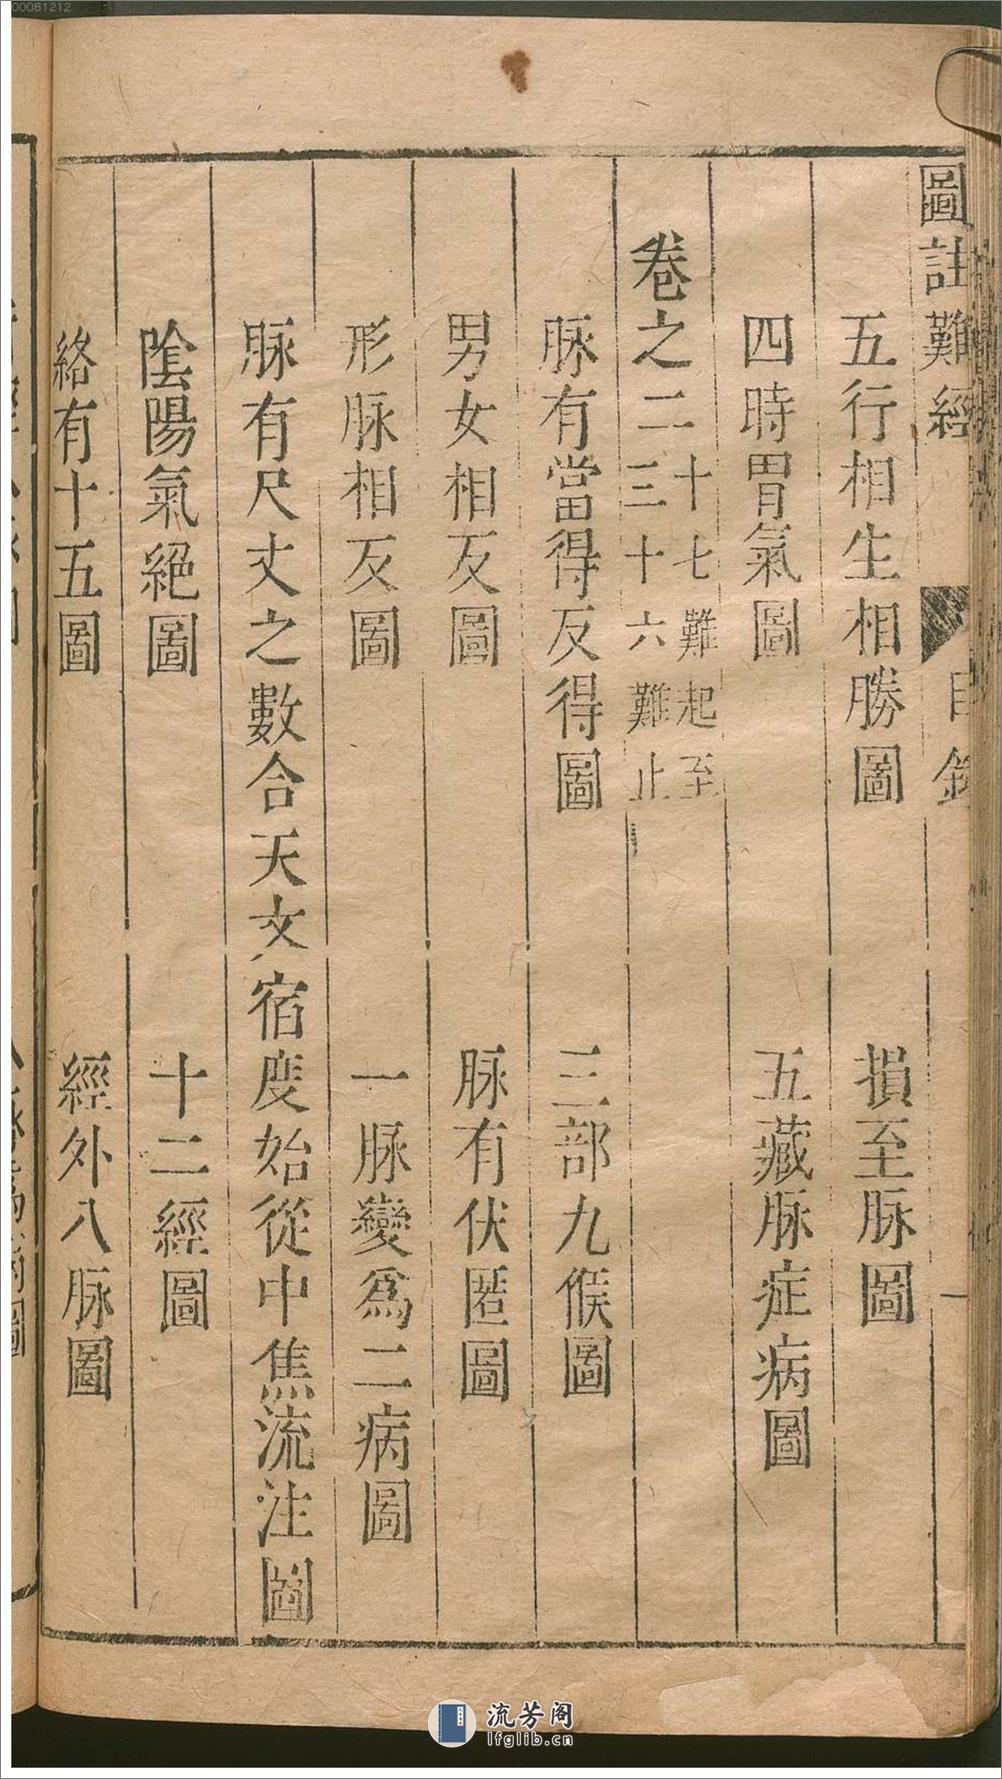 00081212
圖註難經 目錄 一
五行相生相勝圖 損至脉圖
四時胃氣圖 五藏脉症病圖
卷之二 十七難起至三十六難止
脉有當得反得圖 三部九候圖
男女相反圖 脉有伏匿圖
形脉相反圖 一脉變爲二病圖
脉有尺丈之數合天文宿度始從中焦流注圖
陰陽氣絕圖 十二經圖
絡有十五圖 經外八脉圖
流芳阁
lfglib.cn